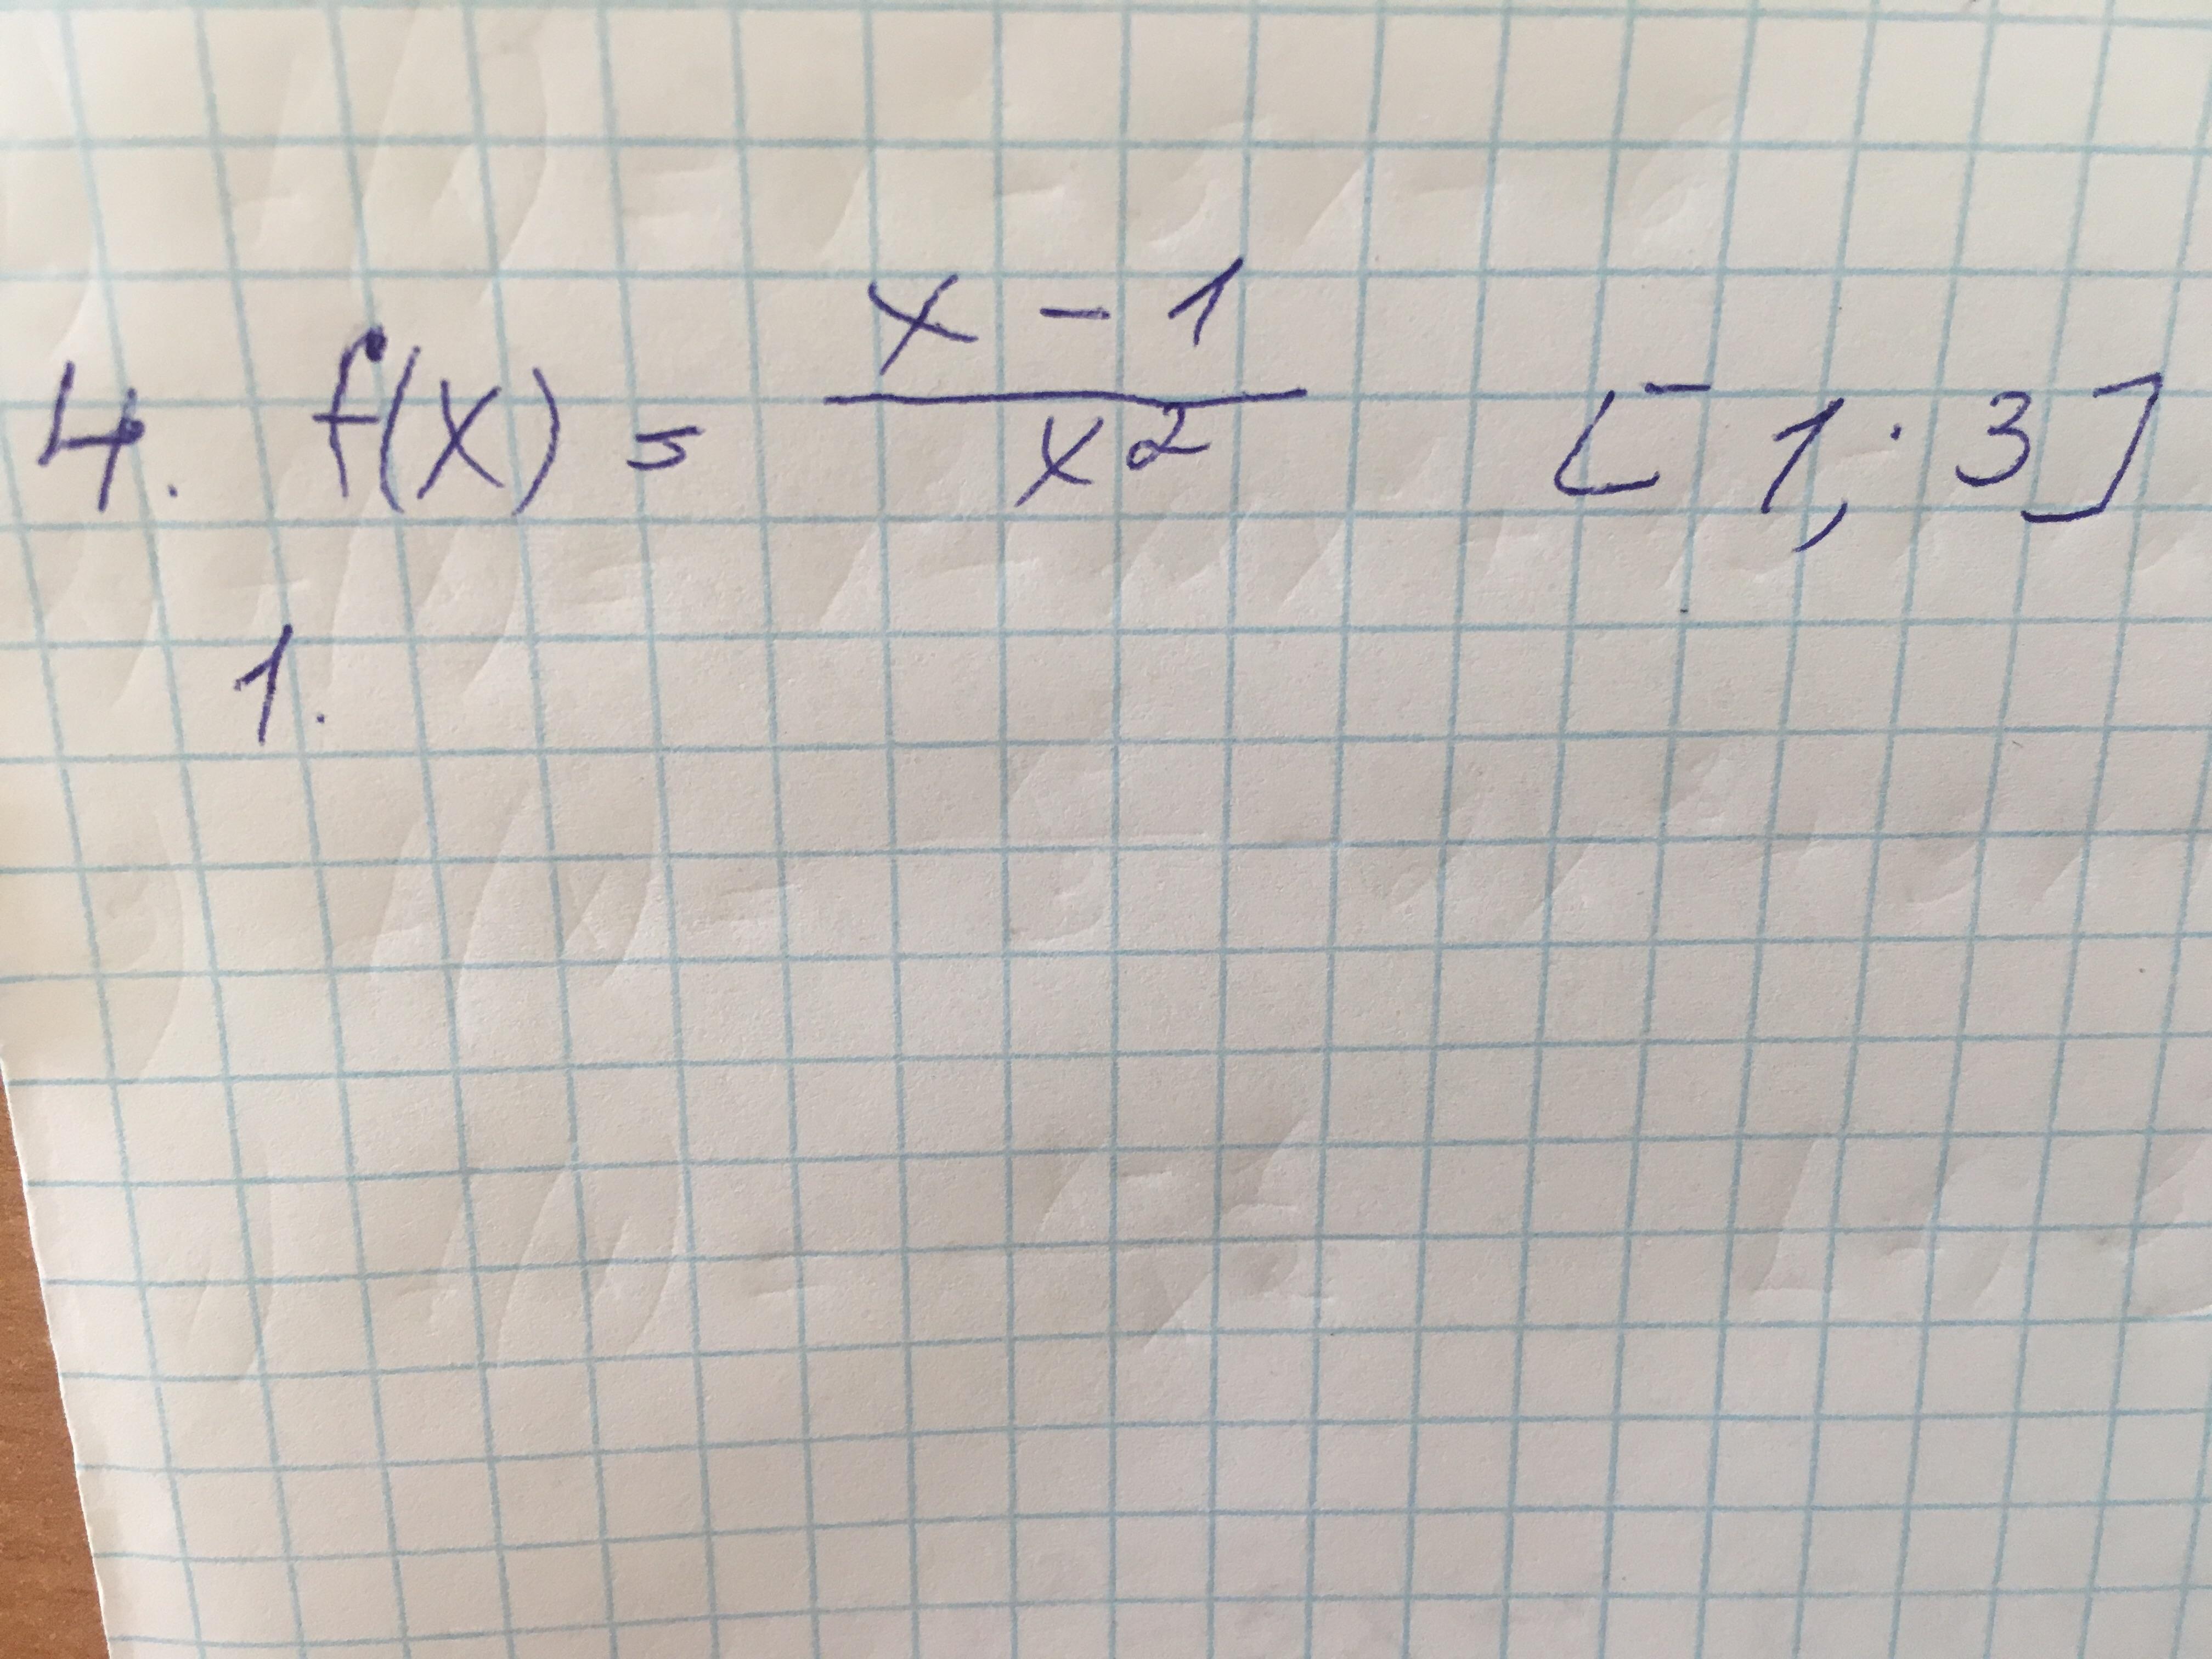 4. f(x) = (x - 1)/x² [1; 3]
1.